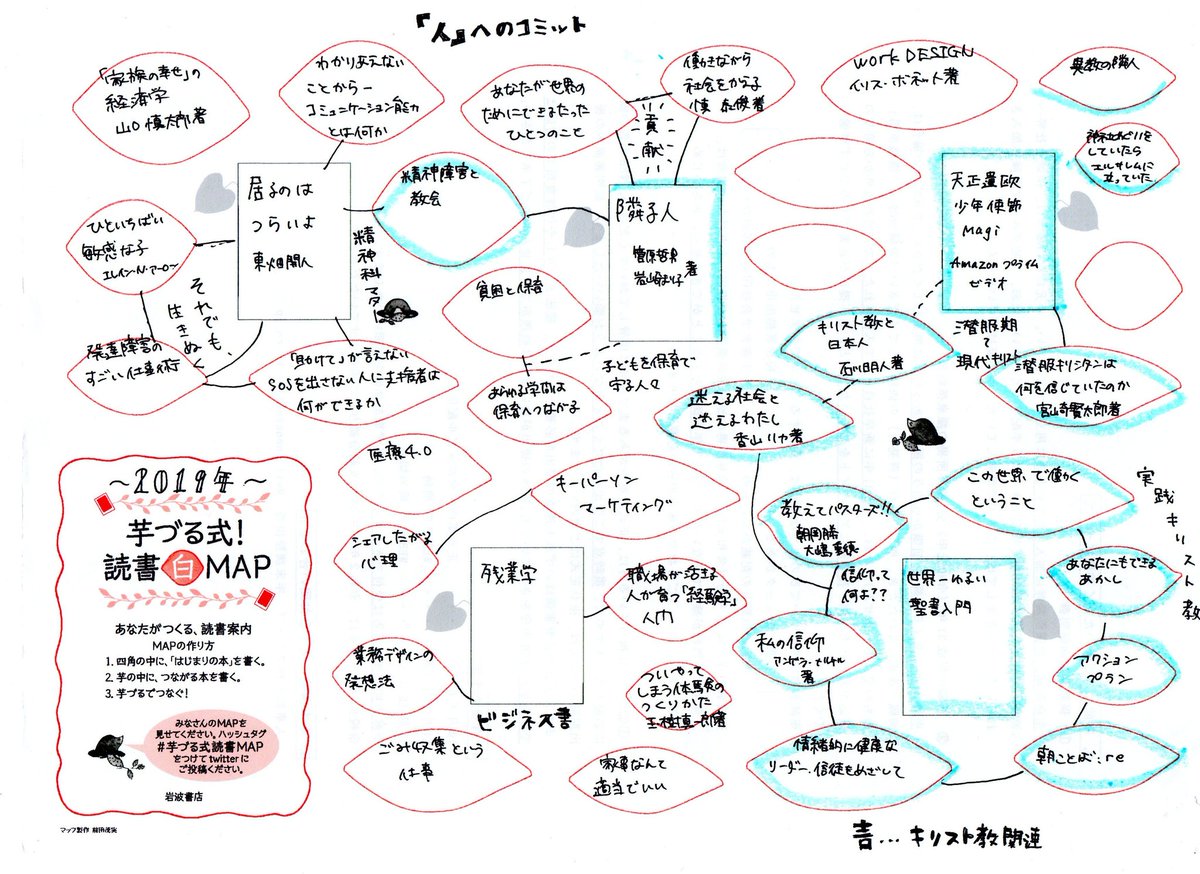 『人』へのコミット
「家族の幸せ」の
経済学
山口慎太郎著
わかりあえない
ことから—
コミュニケーション能力
とは何か
あなたが世界の
ためにできるたった
ひとつのこと
貢献
働きながら
社会をかえる
慎 泰俊著
work DESIGN
イリス・ボネット著
異教の隣人
神社めぐりを
していたら
エルサレムに
立っていた
居るのは
つらいよ
東畑開人
精神障害と
教会
精神科マター
隣る人
菅原哲男
岩崎まり子
著
天正遣欧
少年使節
Magi
Amazonプライム
ビデオ
ひといちばい
敏感な子
エレイン・N・アーロン
それでも、
生きぬく
発達障害の
すごい仕事術
「助けて」が言えない
SOSを出さない人に支援者は
何ができるか
貧困と保育
あらゆる学問は
保育へつながる
子どもを保育で
守る人々
キリスト教と
日本人
石川明人著
潜服期
て
現代キリスト
潜服キリシタンは
何を信じていたのか
宮崎賢太郎著
迷える社会と
迷えるわたし
香山リカ著
医療4.0
キーパーソン
マーケティング
シェアしたがる
心理
残業学
職場が活きる
人が育つ「経験学」
入門
業務デザインの
発想法
ビジネス書
ついやって
しまう体験の
つくりかた
玉樹真一郎著
ごみ収集という
仕事
家事なんて
適当でいい
教えてパスターズ!!
朝岡勝
大嶋重徳
この世界で働く
ということ
実践キリスト教
あなたにもできる
あかし
世界一ゆるい
聖書入門
信仰って
何よ??
私の信仰
アンゲラ・メルケル
著
アクション
プラン
情緒的に健康な
リーダー・信徒をめざして
朝ことば:re
青…キリスト教関連
～2019年～
芋づる式!
読書白MAP
あなたがつくる、読書案内
MAPの作り方
1. 四角の中に、「はじまりの本」を書く。
2. 芋の中に、つながる本を書く。
3. 芋づるでつなぐ!
みなさんのMAPを
見せてください。ハッシュタグ
#芋づる式読書MAP
をつけてtwitterに
ご投稿ください。
岩波書店